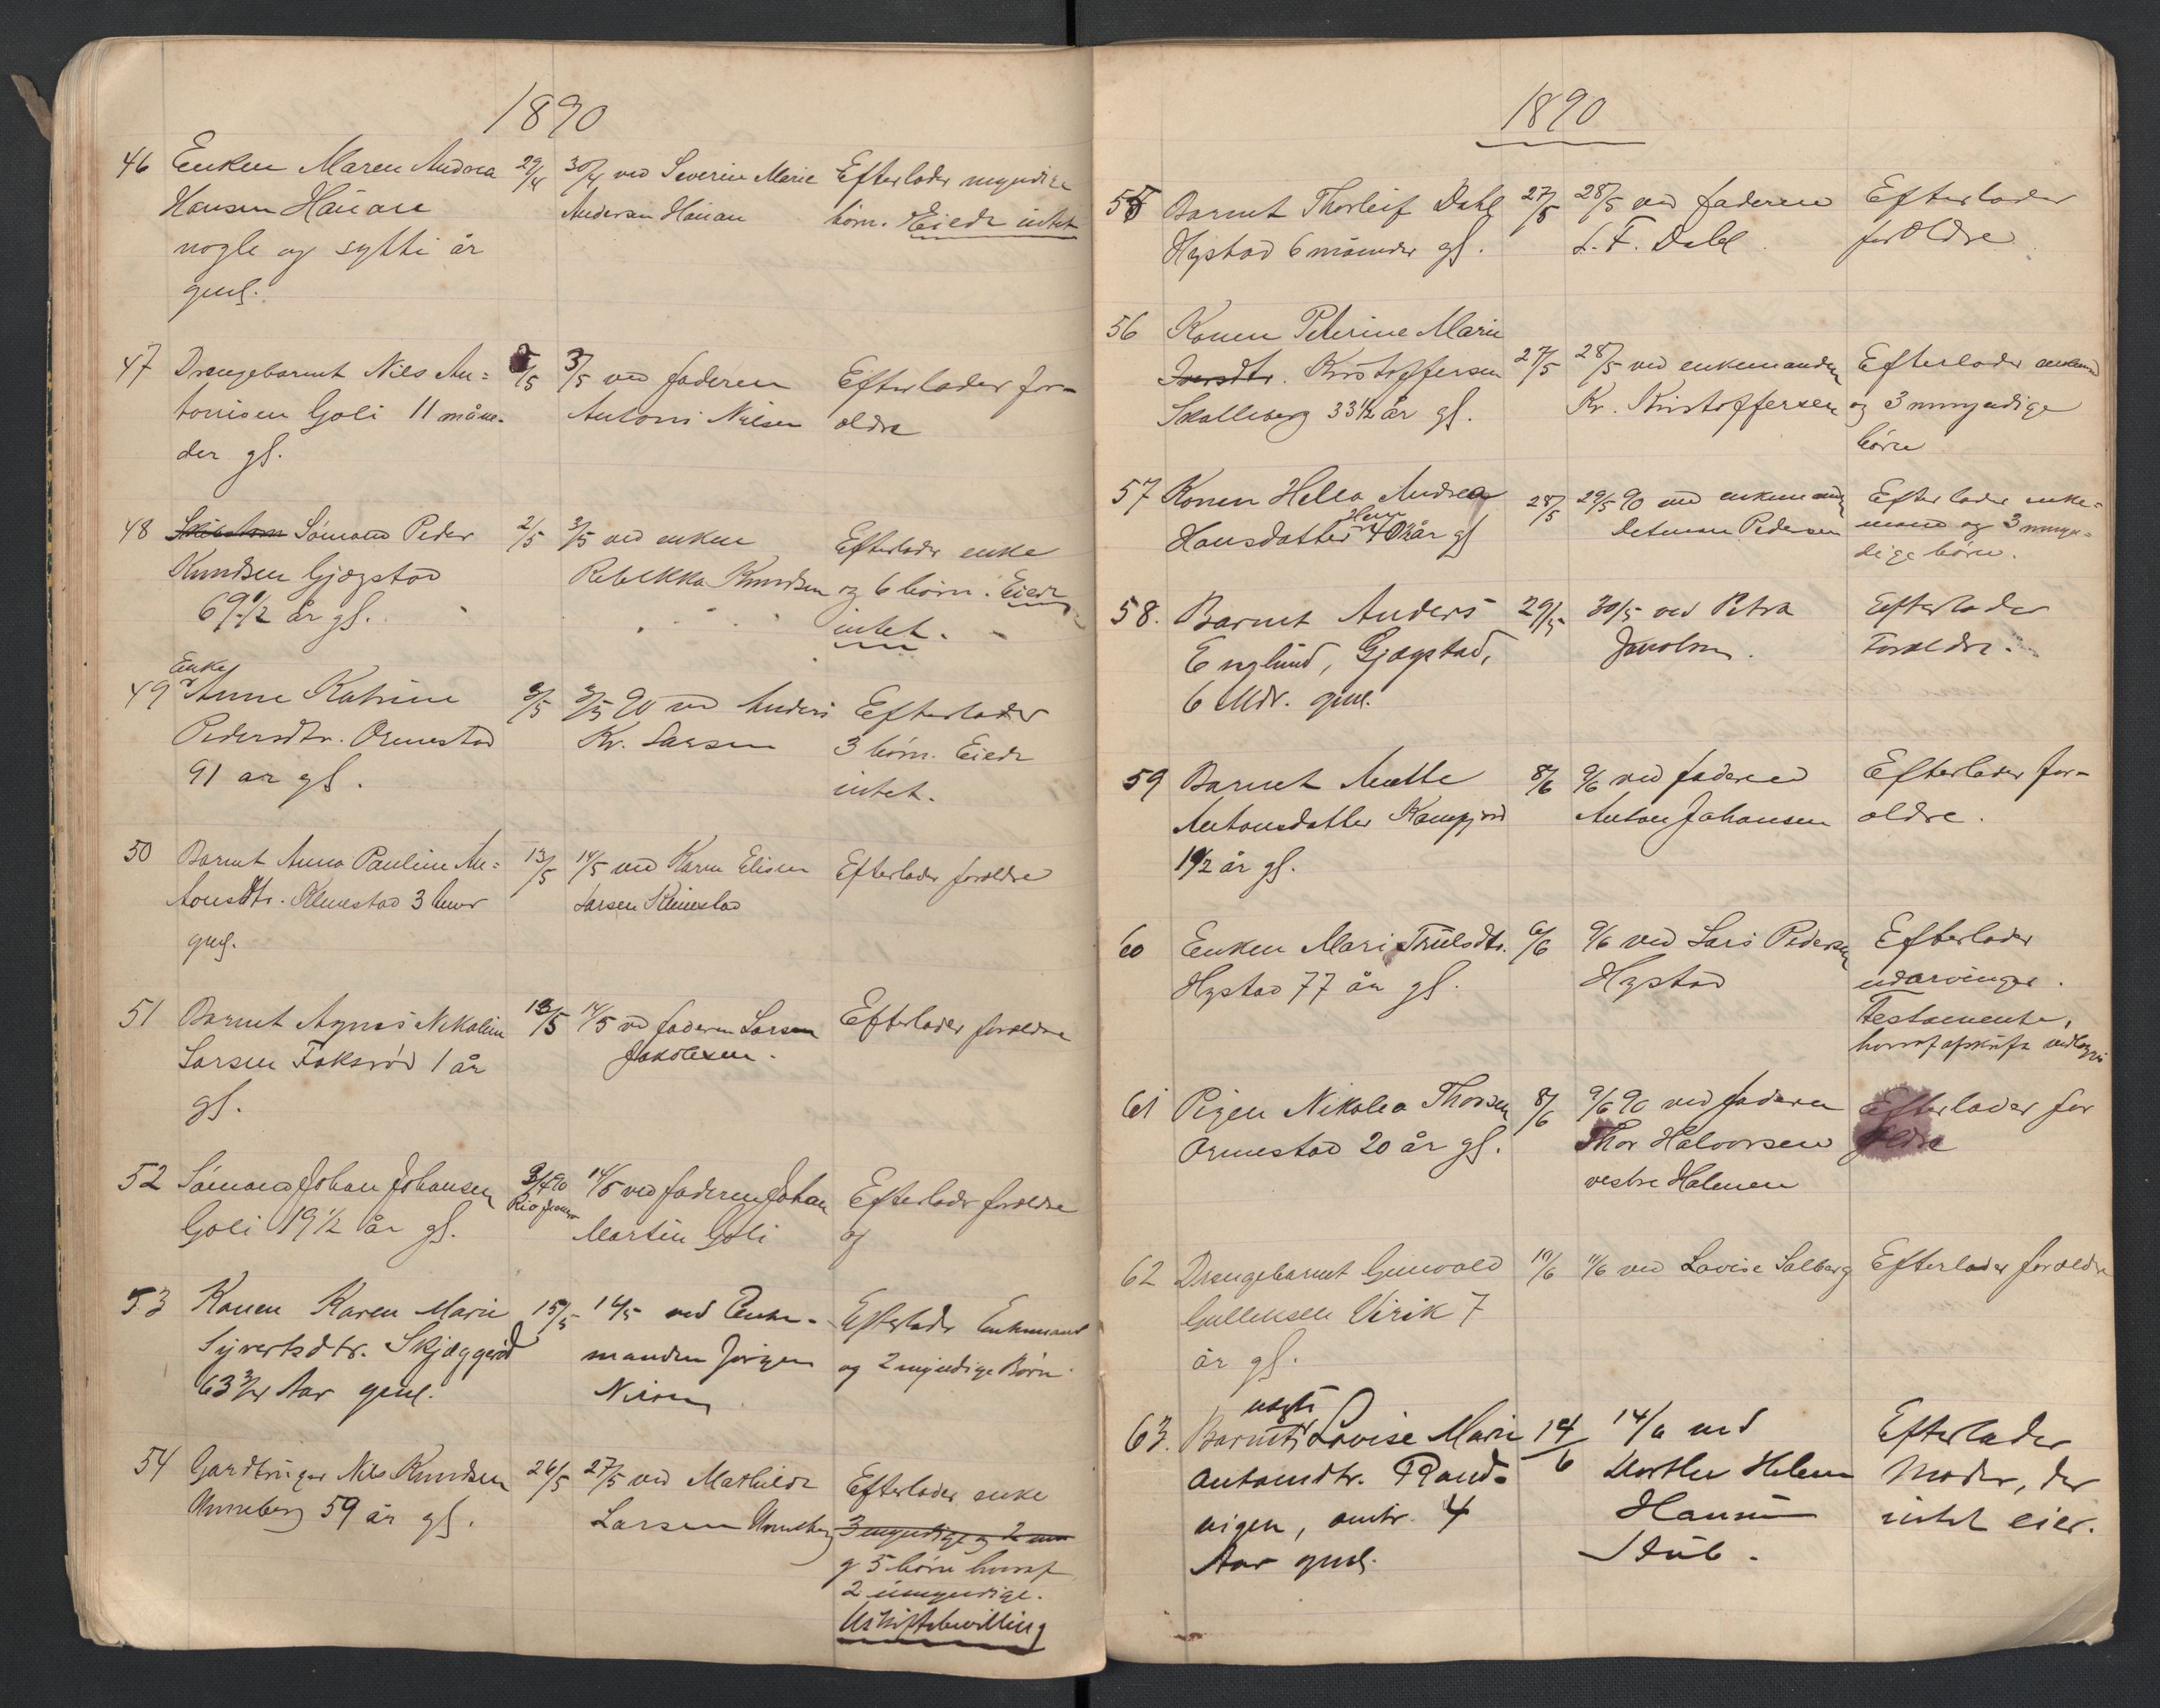 1890
46 Enken Maren Andrea 29/4 30/4 ved Severin Marie Efterlader myndige
Hansen Hauan Andersen Hauan børn. Eiede intet
nogle og sytti år
gml.
47 Drengebarnet Nils An= /5 3/5 ved faderen Efterlader for-
tonisen Goli 11 måne- Antoni Nilsen ældre
der gl.
48 Sømand Peder 2/5 3/5 ved enken Efterlader enke
Knudsen Gjøgstad Rebekka Knudsen og 6 børn. Eiede
69 1/2 år gl. intet.
Enke
49 Anne Katrine 2/5 3/5 90 ved Anders Efterlader
Pedersdtr. Ormestad Kr. Larsen 3 børn. Eiede
91 år gl. intet.
50 Barnet Anna Pauline An= 13/5 14/5 ved Karen Elisen Efterlader forældre
tonsdtr. Klinestad 3 Larsen Klinestad
gml.
51 Barnet Agnes Nikoline 13/5 14/5 ved faderen Larsen Efterlader forældre
Larsen Fokserød 1 år Jakobsen.
gl.
52 Sømand Johan Johansen 3/4 90 14/5 ved faderen Johan Efterlader forældre
Goli 19 1/2 år gl. Rio Martin Goli og
53 Konen Karen Marie 15/5 14/5 ved Enke- Efterlader Enkemand
Syvertsdtr. Skjæggerød manden Jørgen og 2 myndige Børn
63 3/4 Aar gml.
54 Gardbruger Nils Knudsen 26/5 27/5 ved Mathilde Efterlader enke
Unneberg 59 år gl. Larsen Unneberg 3 myndige og 2 um
og 5 børn hvoraf
2 umyndige.
Uskiftebevilling
1890
55 Barnet Thorleif Dahl 27/5 28/5 ved faderen Efterlader
Hystad 6 måneder gl. L. F. Dahl forældre
56 Konen Peterine Marie
Iversdtr. Kristoffersen 27/5 28/5 ved enkemanden Efterlader enkemand
Skalleberg 33 1/2 år gl. Kr. Kristoffersen og 3 umyndige
børn
57 Konen Hella Andrea 28/5 29/5 90 ved enkemanden Efterlader enke=
Hansdatter Hem år gl Pedersen mand og 3 umyn=
dige børn.
58. Barnet Anders 29/5 30/5 ved Petra Efterlader
Englund, Gjøgstad, Jakobsen. Forældre.
6 Mdr. gml.
59 Barnet Anette 8/6 9/6 ved faderen Efterlader for-
Antonsdatter Kamfjord Anton Johansen ældre.
1 1/2 år gl.
60 Enken Mari Trulsdtr. 6/6 9/6 ved Lars Pedersen Efterlader
Hystad 77 år gl. Hystad udarvinger.
Testamente,
hvoraf afskrift vedlægges
61 Pigen Nikolea Thorsen 8/6 9/6 90 ved faderen Efterlader for
Ormestad 20 år gl. Thor Halvorsen ældre
vestre Holmen
62 Drengebarnet Gunvald 10/6 11/6 ved Lovise Solberg Efterlader forældre
Gullksen Virik 7
år gl.
uægte
63. Barnet Lovise Marie 14/6 14/6 ved Efterlader
Antonsdtr. Rand- Dorthe Helene Moder, der
vigen, omtr. 4 Hansen intet eier.
Aar gml. Stub.